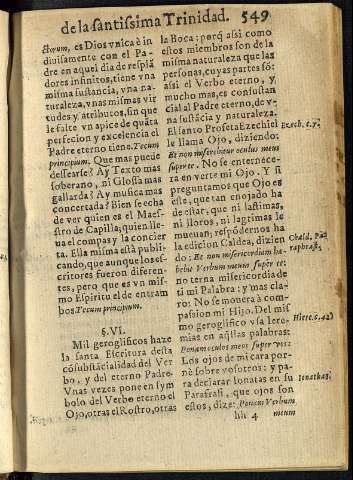 de la santissima Trinidad. 549
ctorum, es Dios vnica è in
diuisamente con el Pa-
dre en aquel dia de resplã
dores infinitos, tiene vna
misma sustancia, vna na-
turaleza, vnas mismas vir
tudes y atributos, sin que
le falte vn apice de quãta
perfecion y excelencia el
Padre eterno tiene. Tecum
principium. Que mas puede
dessearse? Ay Texto mas
soberano, ni Glossa mas
gallarda? Ay musica mas
concertada? Bien se echa
de ver quien es el Maes-
tro de Capilla; quien lle-
ua el compas y la concier
ta. Ella misma está publi-
cando, que aunque los es-
critores fueron diferen-
tes, pero que es vn mis-
mo Espiritu el de entram
bos Tecum principium.
§. VI.
Mil geroglificos haze
la santa Escritura desta
cõsubstãcialidad del Ver
bo, y del eterno Padre.
Vnas vezes pone en sym
bolo del Verbo eterno el
Ojo, otras el Rostro, otras
la Boca: porq̃ assi como
estos miembros son de la
misma naturaleza que las
personas, cuyas partes sõ:
assi el Verbo eterno, y
mucho mas, es consustan
cial al Padre eterno, de v-
na sustãcia y naturaleza.
El santo Profeta Ezechiel
le llama Ojo, diziendo:
Et non miserebitur oculus meus
super te. No se enternece-
ra en verte mi Ojo. Y si
preguntamos que Ojo es
este, que tan enojado ha
de estar, que ni lastimas,
ni lloros, ni lagrimas le
mueuan; respõdernos ha
la edicion Caldea, dizien
do: Et non misericordiam ha-
bebit Verbum meum super te.
No terna misericordia de
ti mi Palabra; y mas cla-
ro: No se mouera à com-
passion mi Hijo. Del mis
mo geroglifico vsa Iere-
mias en aq̃llas palabras:
Ponam oculos meos super vos:
Los ojos de mi cara por-
nè sobre vosotros: y pa-
ra declarar Ionatas en su
Parafrasi, que ojos son
estos, dize: Ponam Verbum
Ezech. c. 7.
Chald. Pa
raphrast.
Hiere. c. 42
Ionathas.
hh 4 meum